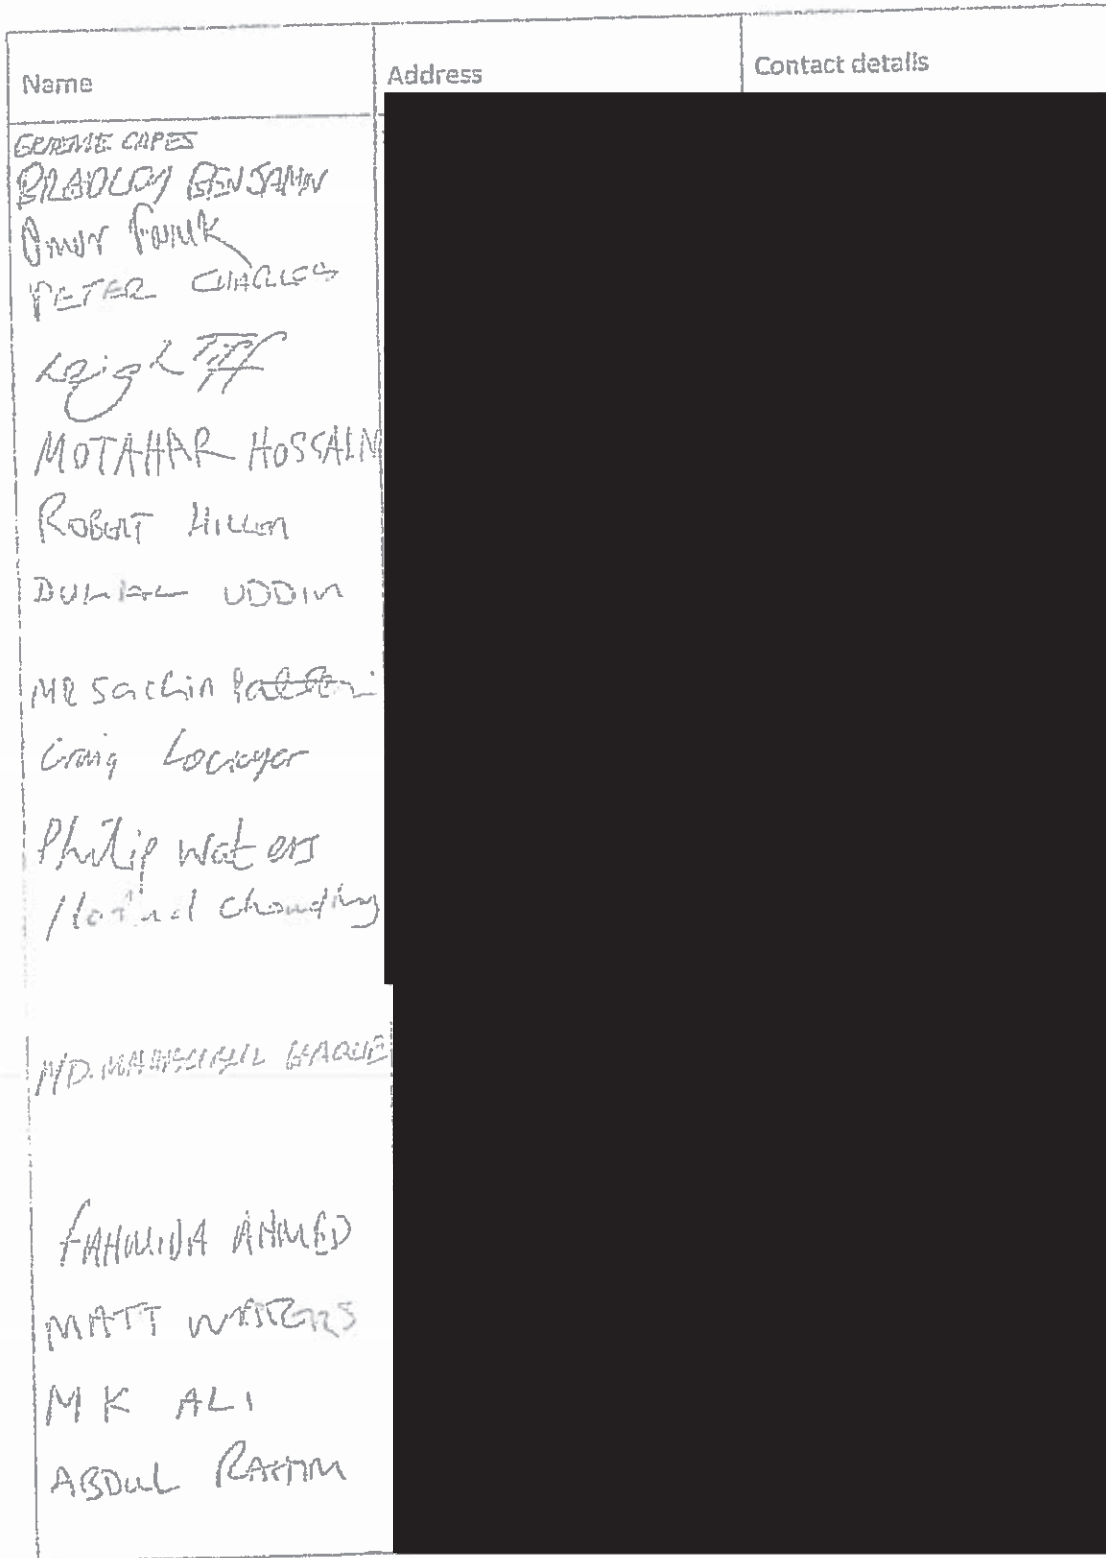 Name Address Contact details
GRAEME CAPES
BRADLEY BENJAMIN
PETER CHARLES
Leigh Tiff
MOTAHAR HOSSAIN
ROBERT
UDDIN
MR Sachin
Craig Lockyer
Philip Waters
Chowdhury
MD. HAQUE
FAHMIDA AHMED
MATT WATERS
M K ALI
ABDUL RAHIM